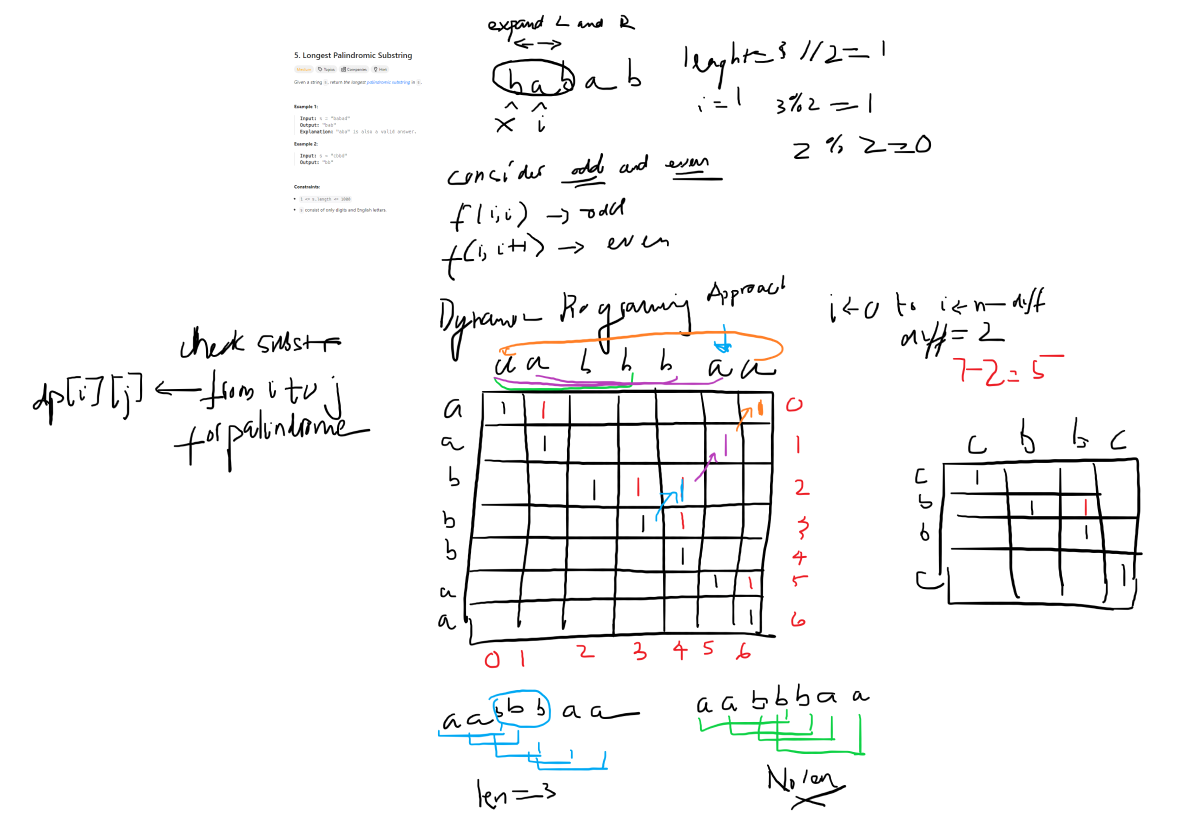 expand L and R
5. Longest Palindromic Substring
Medium Topics Companies Hint
Given a string s, return the longest palindromic substring in s.
Example 1:
Input: s = "babad"
Output: "bab"
Explanation: "aba" is also a valid answer.
Example 2:
Input: s = "cbbd"
Output: "bb"
Constraints:
1 <= s.length <= 1000
s consist of only digits and English letters.
b a b a b
x i
lenght = 3 // 2 = 1
i = 1 3 % 2 = 1
2 % 2 = 0
consider odd and even
f(i,i) → odd
f(i, i+1) → even
Approach
i ← 0 to i ← n - diff
diff = 2
7-2=5
check substr
dp[i][j] ← from i to j
for palindrome
a a b b b a a
a 1 1 1 0
a 1 1 1
b 1 1 1 2
b 1 1 3
b 1 4
a 1 1 5
a 1 6
0 1 2 3 4 5 6
c b b c
c 1
b 1 1
b 1
c 1
a a b b b a a
len = 3
a a b b b a a
No len